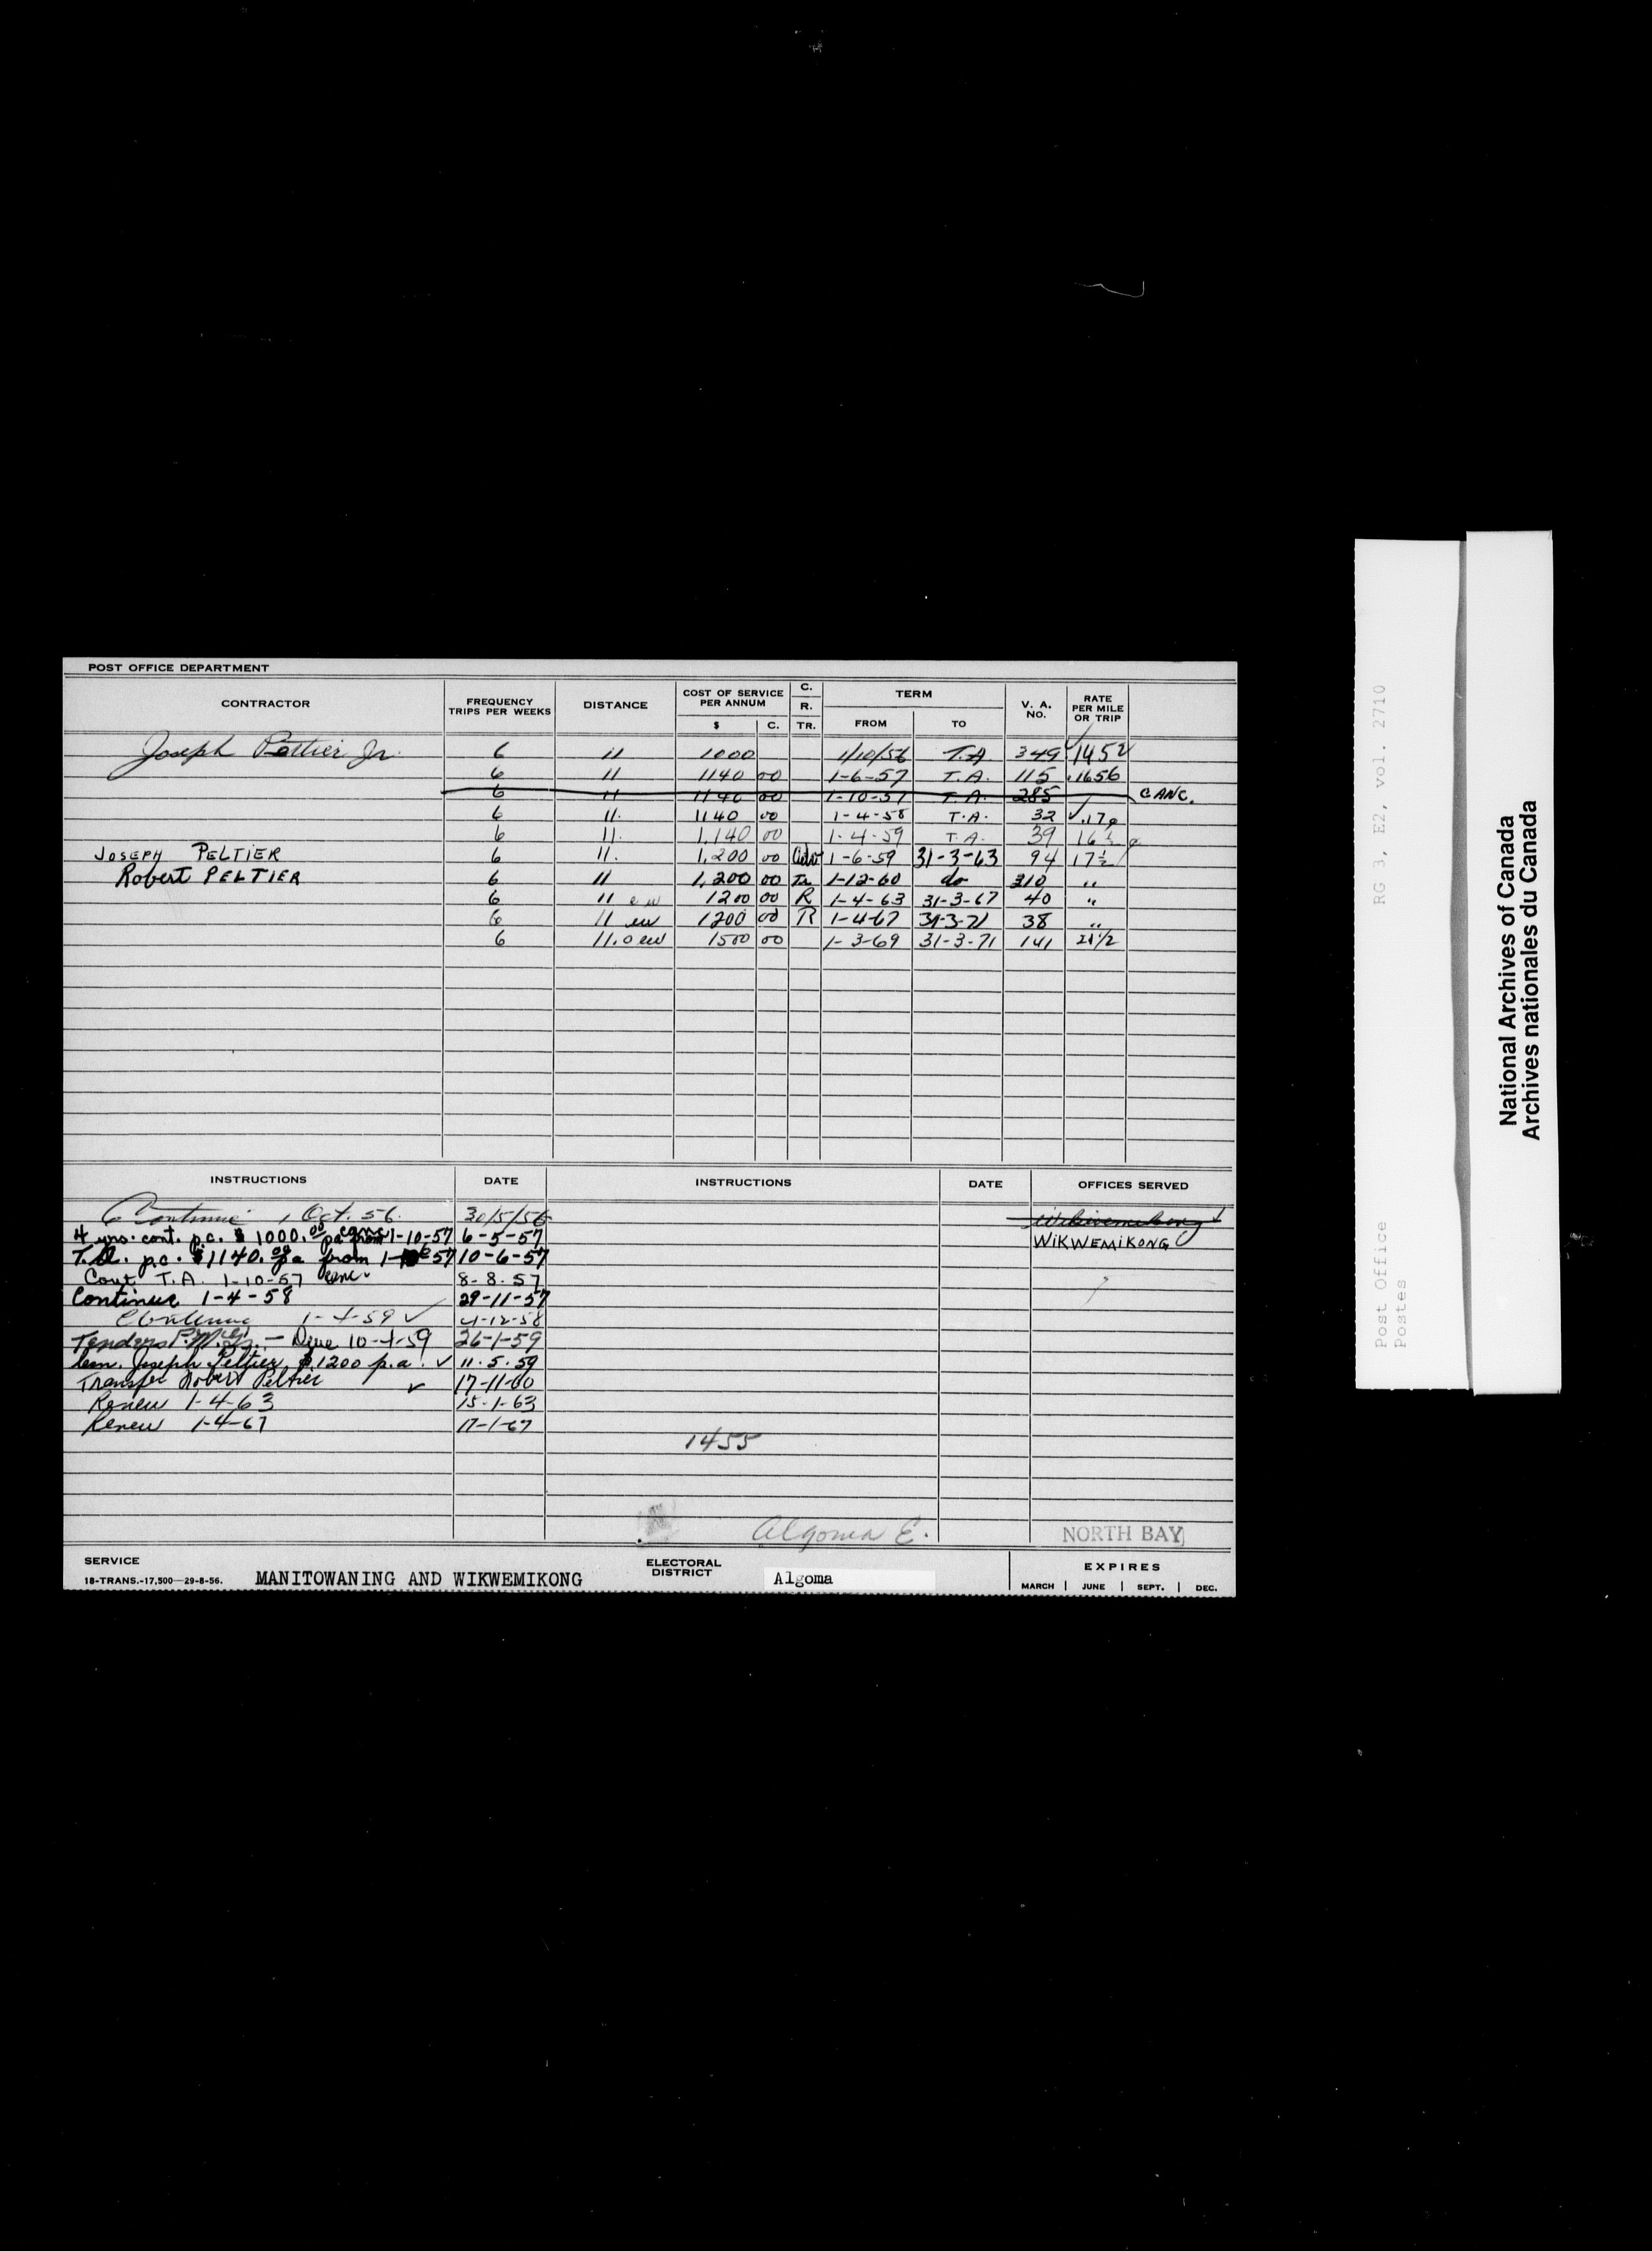 POST OFFICE DEPARTMENT
CONTRACTOR FREQUENCY TRIPS PER WEEKS DISTANCE COST OF SERVICE PER ANNUM $ C. C. R. TR. TERM FROM TO V. A. NO. RATE PER MILE OR TRIP
Joseph Peltier Jr. 6 11 1000 1/10/56 T.A. 349 1452
6 11 1140 00 1-6-57 T.A. 115 .1656
6 11 1140 00 1-10-57 T.A. 285 CANC.
6 11. 1140 00 1-4-58 T.A. 32 .17
6 11. 1,140 00 1-4-59 T.A. 39 16½
JOSEPH PELTIER 6 11. 1,200 00 Adv 1-6-59 31-3-63 94 17½
Robert PELTIER 6 11 1,200 00 Tr 1-12-60 do 310 "
6 11 ew 1200 00 R 1-4-63 31-3-67 40 "
6 11 ew 1200 00 R 1-4-67 31-3-71 38 "
6 11.0 ew 1500 00 1-3-69 31-3-71 141 21½
INSTRUCTIONS DATE INSTRUCTIONS DATE OFFICES SERVED
Continue 1 Oct. 56. 30/5/56 Wikwemikong
4 yrs. cont. p.c. $1000.00 pa from 1-10-57 canc 6-5-57 WIKWEMIKONG
T.A. p.c. $1140.00 pa from 1-6-57 10-6-57
Cont T.A. 1-10-57 canc. 8-8-57
Continue 1-4-58 29-11-57
Continue 1-4-59 ✓ 4-12-58
Tenders — Due 10-4-59 26-1-59
Joseph Peltier $1200 p.a. ✓ 11.5.59
Transfer Robert Peltier ✓ 17-11-60
Renew 1-4-63 15-1-63
Renew 1-4-67 17-1-67
1455
Algoma E. NORTH BAY
SERVICE MANITOWANING AND WIKWEMIKONG ELECTORAL DISTRICT Algoma EXPIRES
18-TRANS.-17,500—29-8-56. MARCH JUNE SEPT. DEC.
RG 3, E2, vol. 2710
Post Office
Postes
National Archives of Canada
Archives nationales du Canada